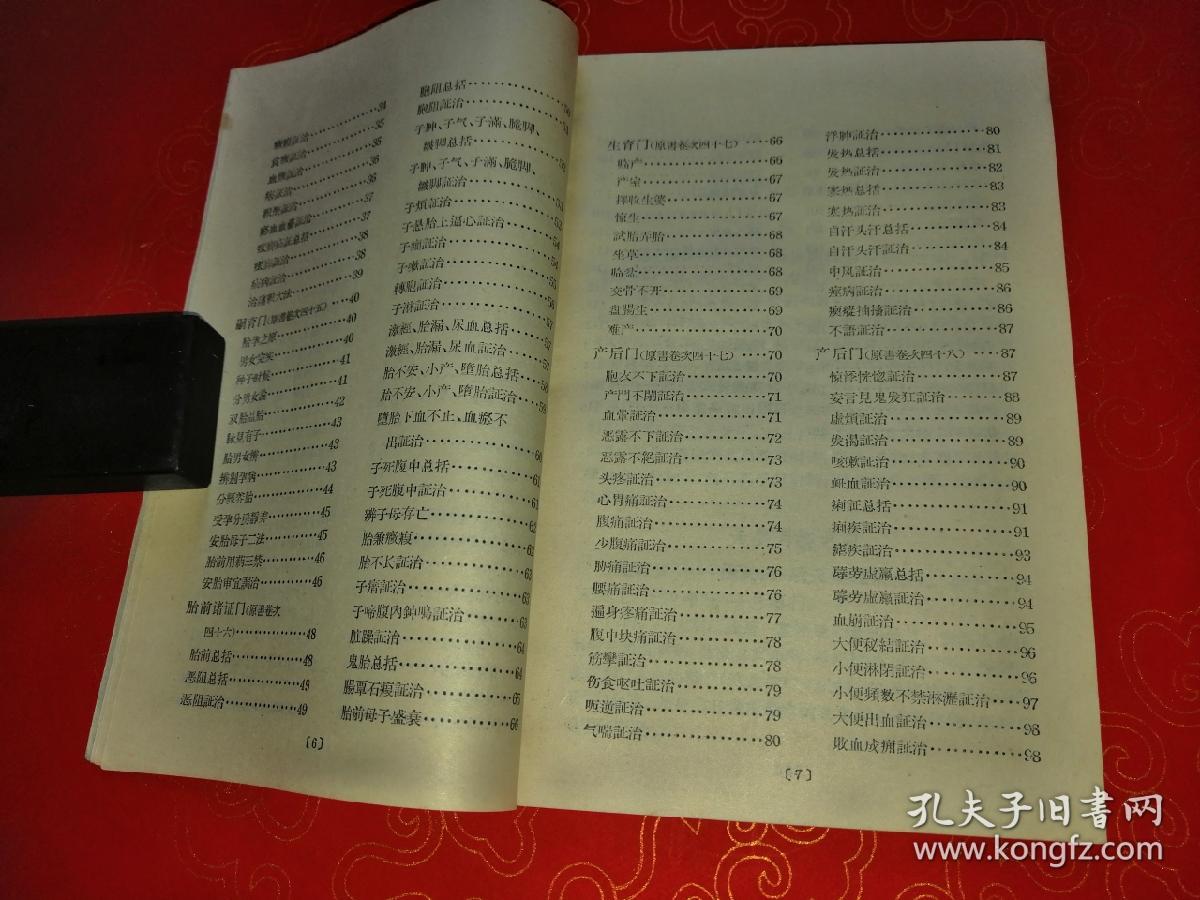 癥痼証治……34
食癥証治……35
血癥証治……36
痞証治……36
積聚証治……36
瘀血血蓄証治……37
痃癖疝証总括……37
痃癖証治……38
疝病証治……38
治諸积大法……39
嗣育門(原書卷次四十五)……40
胎孕之原……40
男女完实……41
种子时候……41
分男女論……42
双胎品胎……43
脉見有子……43
胎男女辨……43
辨別孕病……44
分經养胎……45
受孕分房靜养……45
安胎母子二法……46
胎前用药三禁……46
安胎审宜調治
胎前諸証門(原書卷次
四十六)……48
胎前总括……48
恶阻总括……49
恶阻証治……49
胞阻总括……50
胞阻証治……51
子肿、子气、子滿、脆脚、
皺脚总括……52
子肿、子气、子滿、脆脚、
皺脚証治
子煩証治
子悬胎上逼心証治
子痫証治……54
子嗽証治……55
轉胞証治
子淋証治……57
激經、胎漏、尿血总括……57
激經、胎漏、尿血証治……58
胎不安、小产、墮胎总括……58
胎不安、小产、墮胎証治……59
墮胎下血不止、血瘀不
出証治……60
子死腹中总括……61
子死腹中証治……61
辨子母存亡……62
胎兼癥瘕……62
胎不长証治……63
子瘖証治……63
子啼腹內鐘鳴証治……63
脏躁証治……64
鬼胎总括……64
腸覃石瘕証治……65
胎前母子盛衰……66
〔6〕
生育门(原書卷次四十七)……66
临产……66
产室……67
择收生婆……67
惊生……67
試胎弄胎……68
坐草……68
临盆……68
交骨不开……69
盘腸生……69
难产……70
产后门(原書卷次四十七)……70
胞衣不下証治……70
产門不閉証治……71
血晕証治……71
恶露不下証治……72
恶露不絕証治……73
头疼証治……73
心胃痛証治……74
腹痛証治……74
少腹痛証治……75
胁痛証治……76
腰痛証治……76
遍身疼痛証治……77
腹中块痛証治……78
筋攣証治……78
伤食呕吐証治……79
呃逆証治……79
气喘証治……80
浮肿証治……80
发热总括……81
发热証治……82
寒热总括……83
寒热証治……83
自汗头汗总括……84
自汗头汗証治……84
中风証治……85
痙病証治……86
瘈瘲抽搐証治……86
不語証治……87
产后门(原書卷次四十八)……87
惊悸恍惚証治……87
妄言見鬼发狂証治……88
虛煩証治……89
发渴証治……89
咳嗽証治……90
衄血証治……90
痢証总括……91
痢疾証治……91
瘧疾証治……93
蓐劳虛羸总括……94
蓐劳虛羸証治……94
血崩証治……95
大便秘結証治……96
小便淋閉証治……96
小便頻數不禁淋瀝証治……97
大便出血証治……98
敗血成痈証治……98
〔7〕
孔夫子旧書网
www.kongfz.com